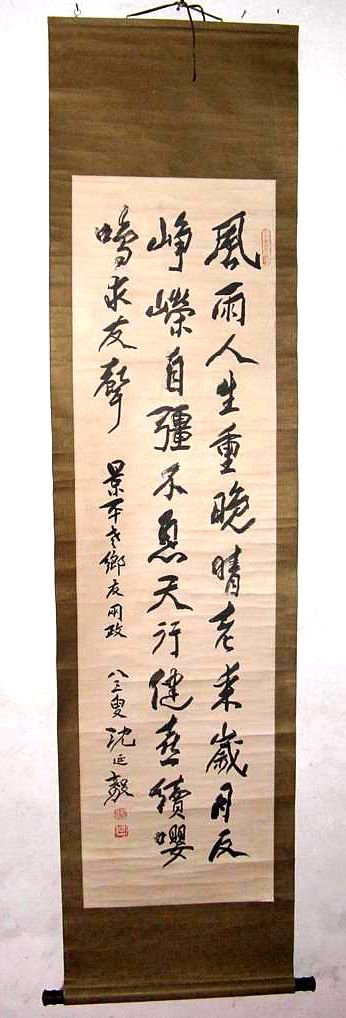 風雨人生重晚晴老来歲月反
崢嶸自彊不息天行健喜續嚶
鳴求友聲
景平老鄉友同政
八三叟沈延毅